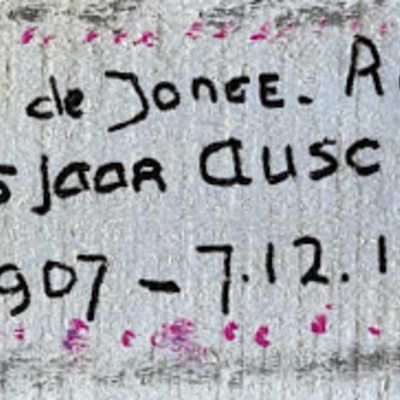 de JONGE. R
5 JAAR AUSC
907 - 7.12.1